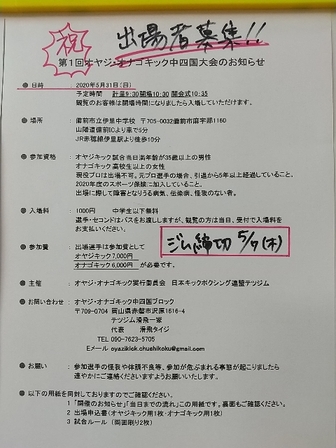 祝
出場者募集!!
第1回オヤジ・オナゴキック中四国大会のお知らせ
● 日時 2020年5月31日(日)
予定時間 計量9:30開場10:30 開会式10:35
観覧のお客様は開場時間になりましたら入場していただけます。
● 場所 備前市立伊里中学校 〒705-0032備前市麻宇那1180
山陽道備前ICより車で5分
JR赤穂線伊里駅より徒歩10分
● 参加資格 オヤジキック試合当日満年齢が35歳以上の男性
オナゴキック高校生以上の女性
現役プロは出場不可。元プロ選手の場合、引退から5年以上経過していること。
2020年度のスポーツ保険に加入していること。
出場に際して障害となりうる病気、伝染病、怪我のない者。
● 入場料 1000円 中学生以下無料
選手・セコンドはパスをお渡ししますが、観覧の方は当日、受付で入場料を
お支払いください。
● 参加費 出場選手は参加費として
オヤジキック7,000円
オナゴキック6,000円が必要です。
ジム締切 5/7(木)
● 主催 オヤジ・オナゴキック実行委員会 日本キックボクシング連盟テツジム
● お問い合わせ オヤジ・オナゴキック中四国ブロック
〒709-0704 岡山県赤磐市沢原1616-4
テツジム滑飛一家
代表 滑飛タイジ
TEL 090-7623-5705
Eメール oyazikick.chushikoku@gmail.com
● お願い 参加選手の怪我や体調不良等、参加が危ぶまれる事態が起こりましたら
速やかにご連絡くださいますようお願いいたします。
● 以下の用紙を同封しておりますのでご確認ください。
1 「開催のお知らせ」「当日までの流れ」この用紙です。裏面もご確認ください。
2 出場申込書(オヤジキック用1枚・オナゴキック用1枚)
3 試合ルール (両面刷り2枚)